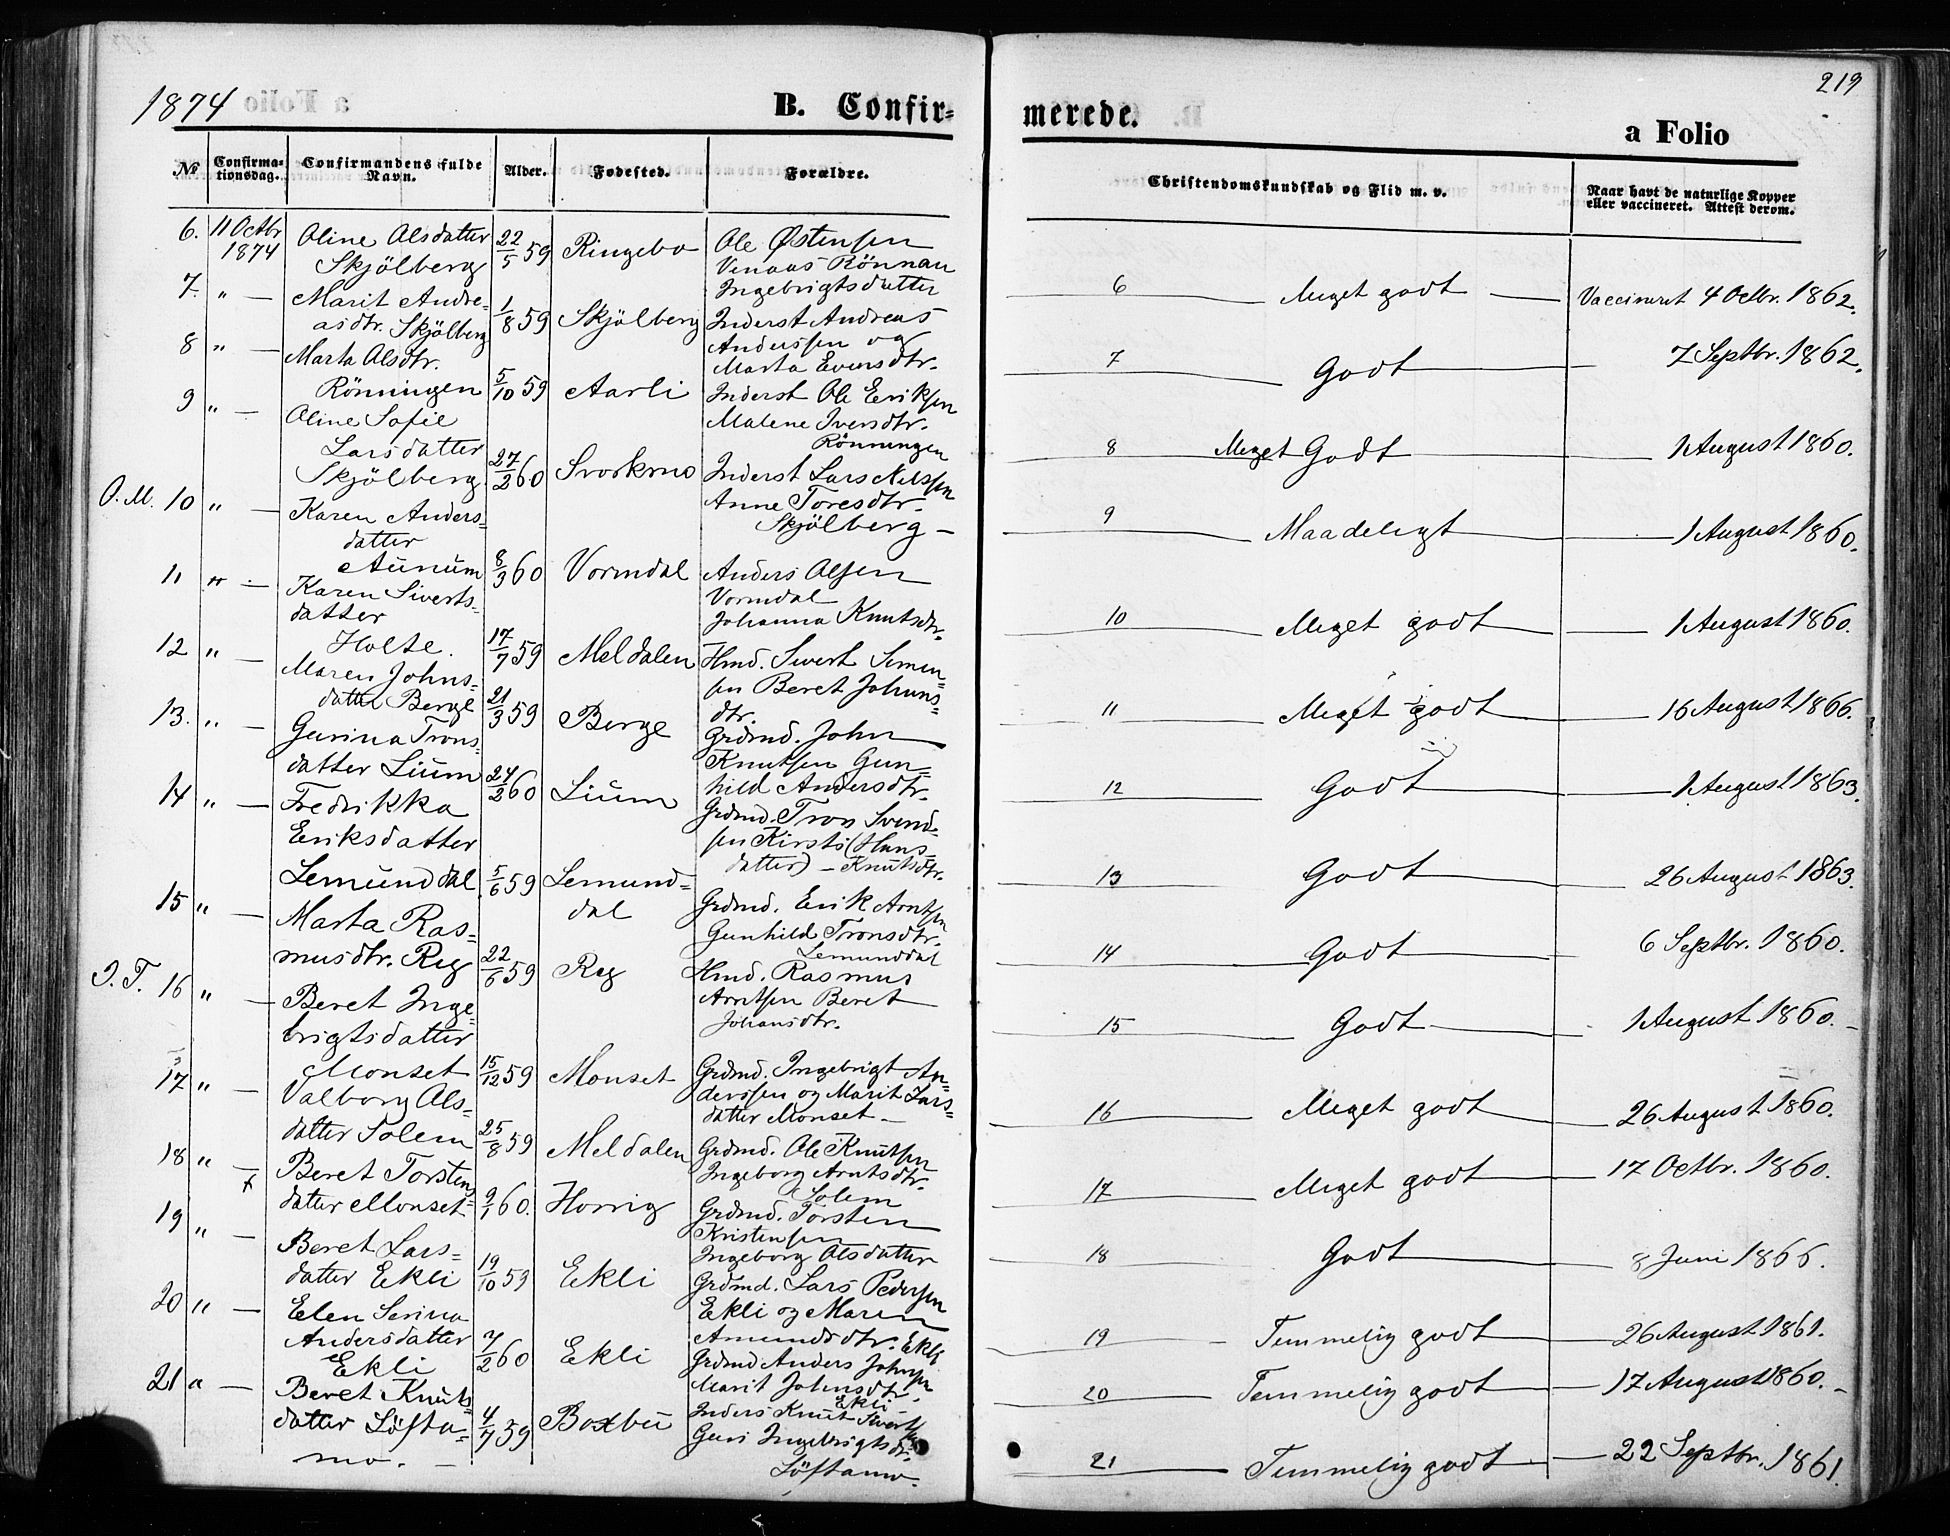 1874
B. Confir=
№
Confirma=
tionsdag.
Confirmandens fulde
Navn.
Alder.
Fødested.
Forældre.
6. 11 Octbr
1874
Oline Olsdatter
Skjölberg
22/5 59
Ringebo
Ole Østensen
Venaas Rönnau
Ingebrigtsdatter
7. " —
Marit Andre=
asdtr. Skjölberg
1/8 59
Skjölberg
Inderst Andreas
Anderssen og
Marta Evensdtr.
8 " —
Marta Olsdtr.
Rönningen
5/10 59
Aarli
Inderst Ole Eriksen
Malene Iversdtr.
Rönningen
9 " —
Oline Sofie
Larsdatter
Skjölberg
27/2 60
Svorkmo
Inderst Lars Nilssen
Anne Toresdtr.
Skjölberg —
O. M. 10 " —
Karen Anders=
datter
Aunum
8/3 60
Vormdal
Anders Olsen
Vormdal
Johanna Knutsdtr.
11 " —
Karen Siverts=
datter
Holte.
17/7 59
Meldalen
Hmd. Sivert Simen=
sen Beret Johans=
dtr.
12 " —
Maren Johns=
datter Berge
21/3 59
Berge
Grdmd. John
Knutsen Gun=
hild Andersdtr.
13. " —
Gurina Trons=
datter Lium
24/2 60
Lium
Grdmd. Tron Svend=
sen Kirsti (Hans=
datter) — Knutsdtr.
14 " —
Fredrikka
Eriksdatter
Lemunddal
5/6 59
Lemund=
dal
Grdmd. Erik Arntsen
Gunhild Tronsdtr.
Lemunddal
15 " —
Marta Ras=
musdtr. Reg
22/6 59
Reg
Hmd. Rasmus
Arntsen Beret
Johansdtr.
I. T. 16 " —
Beret Inge=
brigtsdatter
Monset
15/12 59
Monset
Grdmd. Ingebrigt An=
derssen og Marit Lars=
datter Monset —
17 " —
Valborg Ols=
datter Solem
25/8 59
Meldalen
Grdmd. Ole Knutsen
Ingeborg Arntsdtr.
Solem
18 " —
Beret Torstens
datter Monset
9/1 60.
Horrig
Grdmd. Torsten
Kristensen
Ingeborg Olsdatter
19 " —
Beret Lars=
datter Ekli
19/10 59
Ekli
Grdmd. Lars Pedersen
Ekli og Maren
Amundsdtr. Ekli
20 " —
Elen Serina
Andersdatter
Ekli
7/2 60
Ekli
Grdmd Anders Johnsen
Marit Johnsdtr.
Ekli
21 " —
Beret Knuts=
datter Löfta=
mo. —
4/7 59
Boxbu
Inders Knut Sivertsen
Guri Ingebrigtsdtr.
Löftamo.
219
merede.
a Folio
Christendomskundskab og Flid m. v.
Naar havt de naturlige Kopper
eller vaccineret. Attest derom.
6 — Meget godt — Vaccineret 4 Octbr. 1862.
7 — Godt — 7 Septbr. 1862.
8 Meget Godt — 1 August 1860.
9 — Maadeligt — 1 August 1860.
10 — Meget godt — 1 August 1860.
11 — Meget godt — 16 August 1866.
12 — Godt — 1 August 1863.
13 — Godt — 26 August 1863.
14 — Godt — 6 Septbr. 1860.
15 — Godt — 1 August 1860. —
16 — Meget godt — 26 August 1860.
17 — Meget godt — 17 Octbr. 1860.
18 — Godt — 8 Juni 1866.
19 — Temmelig godt — 26 August 1861.
20 — Temmelig godt — 17 August 1860. —
21 — Temmelig godt — 22 Septbr. 1861.